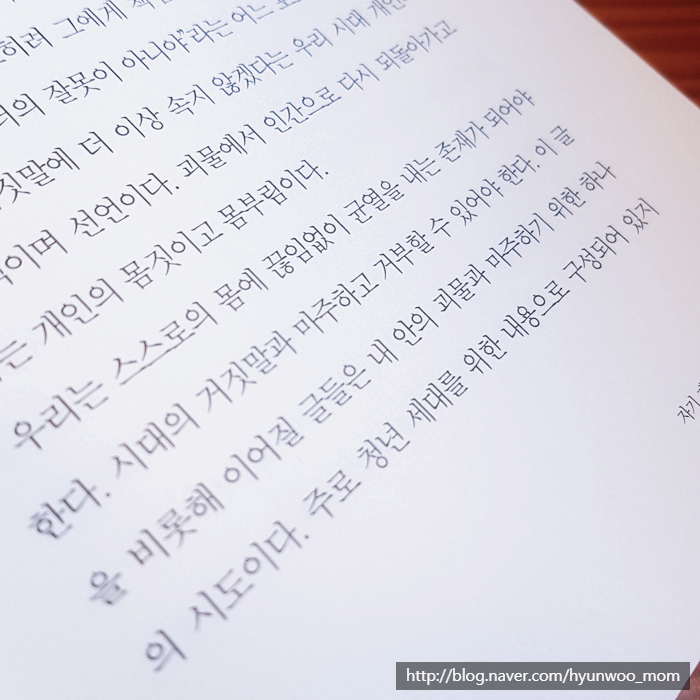 그에게
잘못이 아니야”라는 어느
더 이상 속지 않겠다는 우리 시대
이며 선언이다. 괴물에서 인간으로 다시 되돌아가고
개인의 몸짓이고 몸부림이다.
우리는 스스로의 몸에 끊임없이 균열을 내는 존재가 되어야
한다. 시대의 거짓말과 마주하고 거부할 수 있어야 한다. 이 글
을 비롯해 이어질 글들은 내 안의 괴물과 마주하기 위한 하나
의 시도이다. 주로 청년 세대를 위한 내용으로 구성되어 있지
http://blog.naver.com/hyunwoo_mom